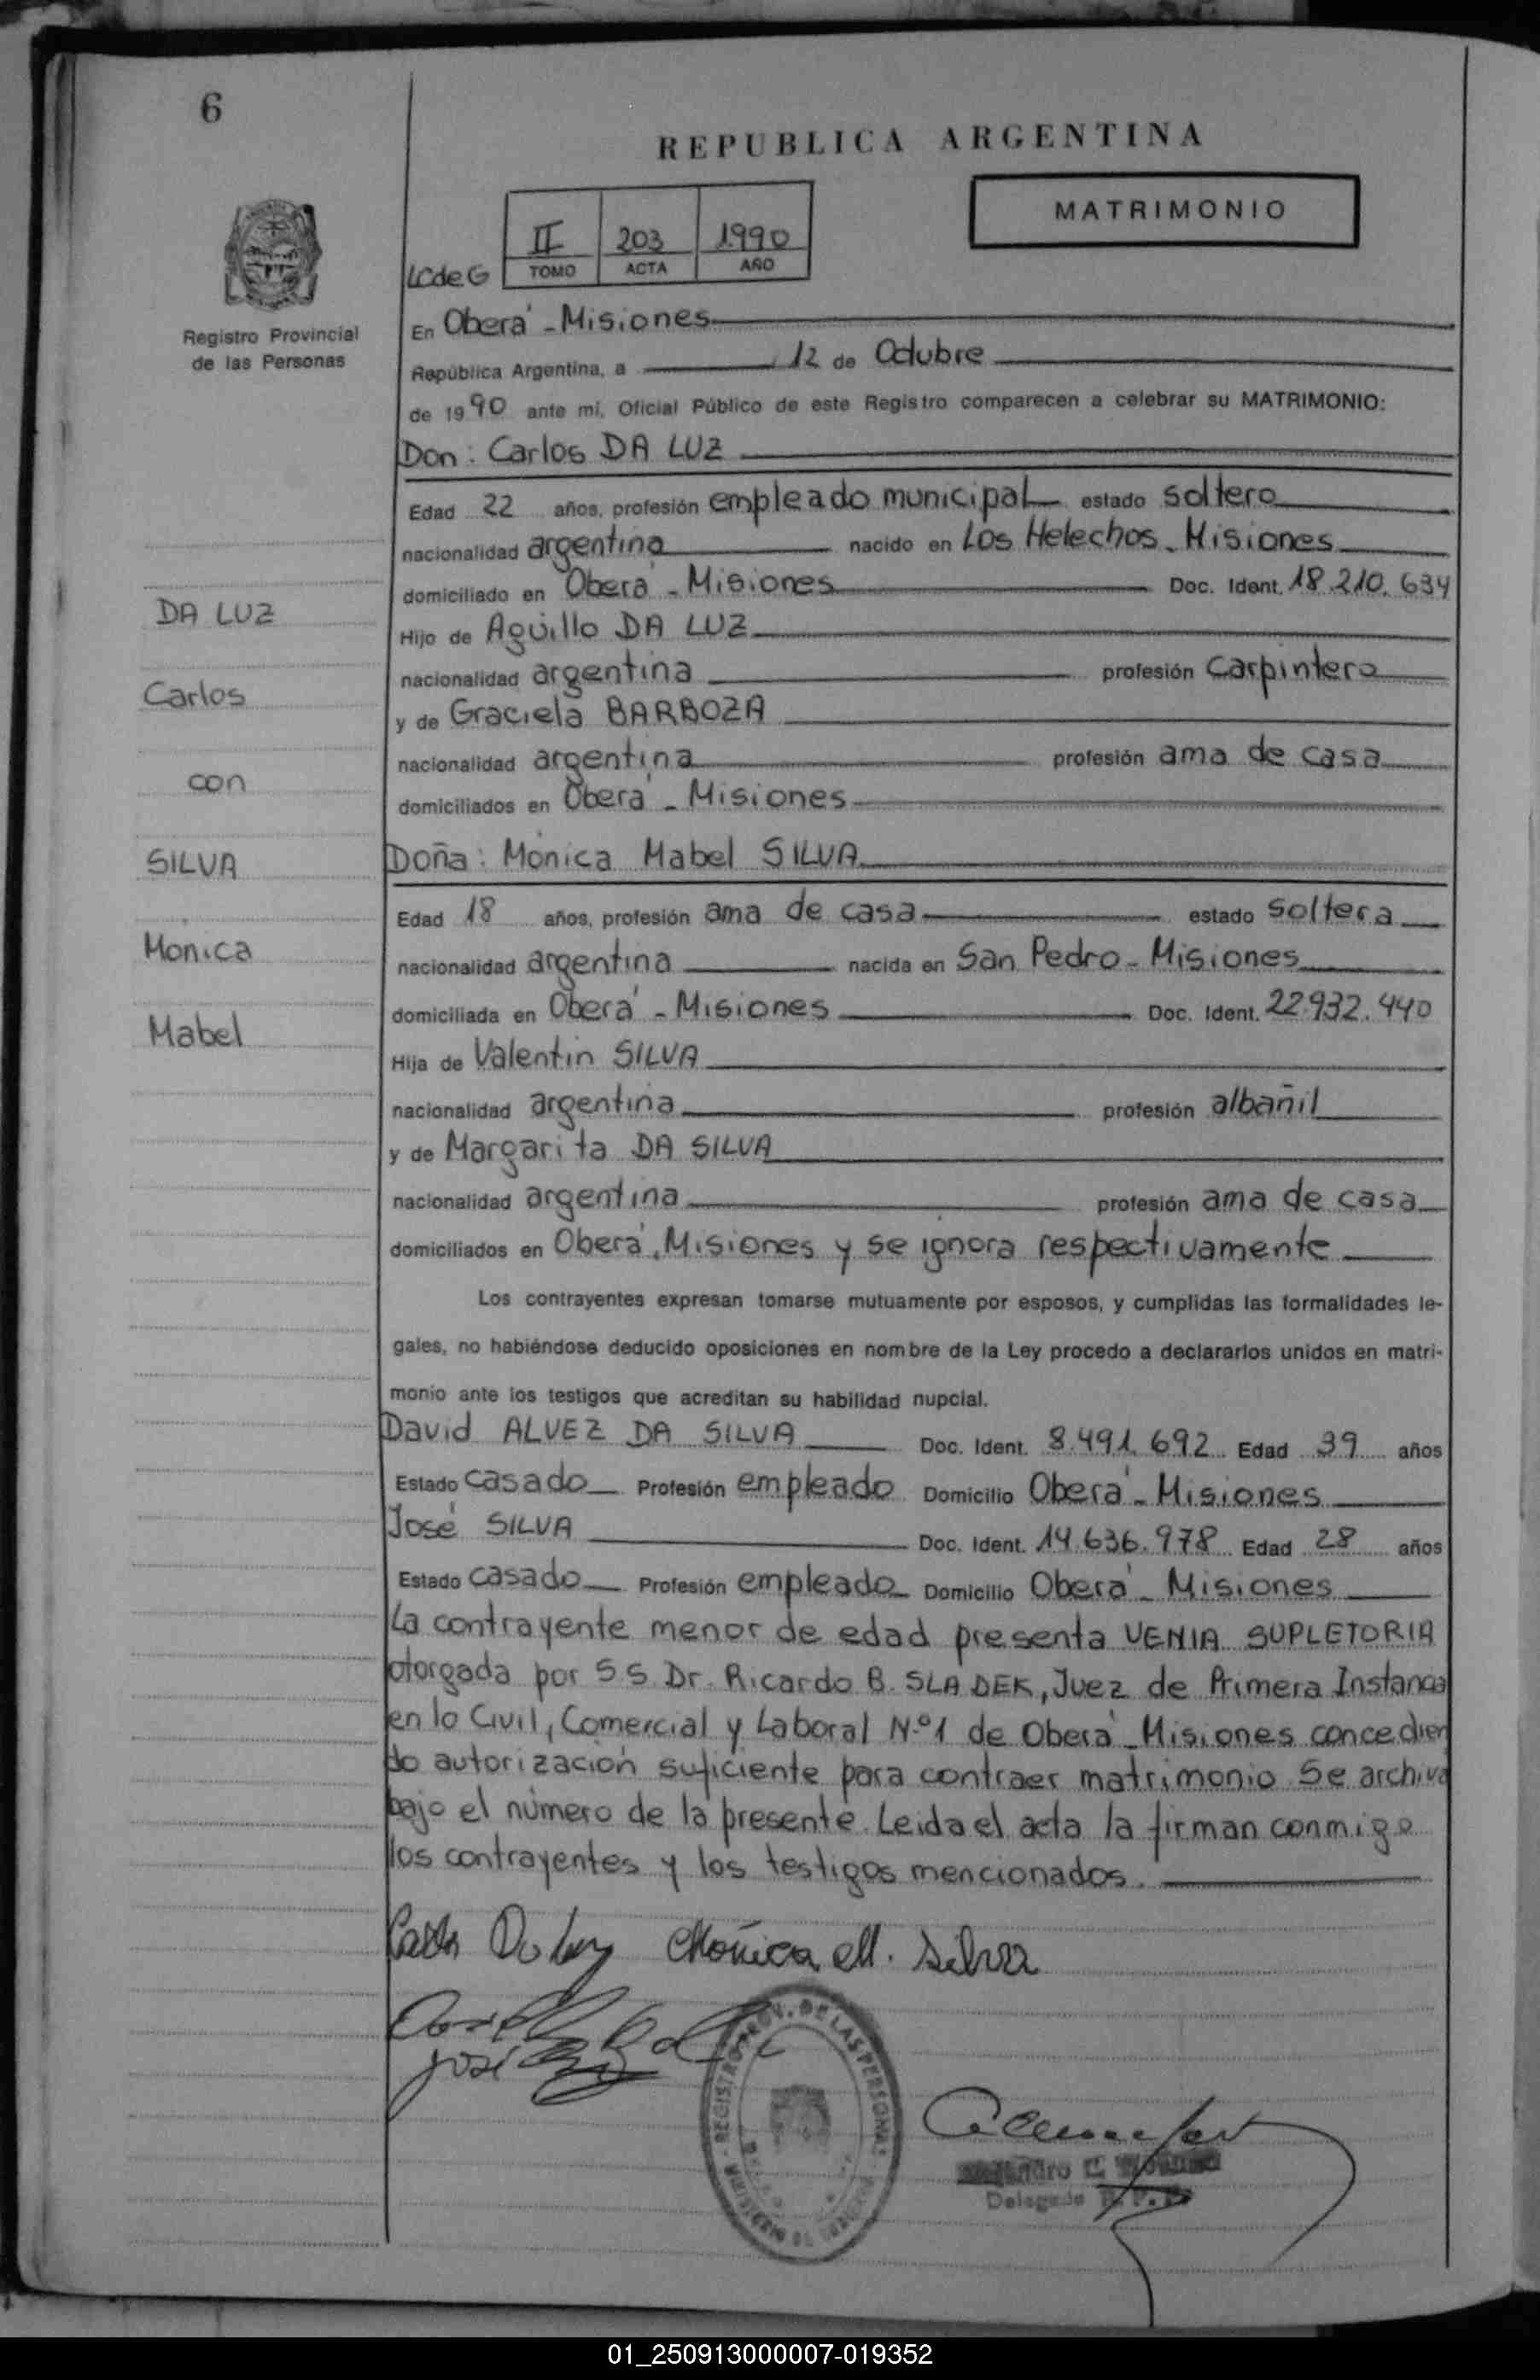 6
REPUBLICA ARGENTINA
MATRIMONIO
II 203 1990
TOMO ACTA AÑO
LCdeG
Registro Provincial
de las Personas
En Oberá - Misiones
República Argentina, a 12 de Octubre
de 1990 ante mí, Oficial Público de este Registro comparecen a celebrar su MATRIMONIO:
Don: Carlos DA LUZ
Edad 22 años, profesión empleado municipal estado soltero
nacionalidad argentina nacido en Los Helechos - Misiones
domiciliado en Oberá - Misiones Doc. Ident. 18.210.634
Hijo de Aguillo DA LUZ
nacionalidad argentina profesión carpintero
y de Graciela BARBOZA
nacionalidad argentina profesión ama de casa
domiciliados en Oberá - Misiones
DA LUZ
Carlos
con
SILVA
Mónica
Mabel
Doña: Mónica Mabel SILVA
Edad 18 años, profesión ama de casa estado soltera
nacionalidad argentina nacida en San Pedro - Misiones
domiciliada en Oberá - Misiones Doc. Ident. 22.932.440
Hija de Valentin SILVA
nacionalidad argentina profesión albañil
y de Margarita DA SILVA
nacionalidad argentina profesión ama de casa
domiciliados en Oberá, Misiones y se ignora respectivamente
Los contrayentes expresan tomarse mutuamente por esposos, y cumplidas las formalidades le-
gales, no habiéndose deducido oposiciones en nombre de la Ley procedo a declararlos unidos en matri-
monio ante los testigos que acreditan su habilidad nupcial.
David ALVEZ DA SILVA Doc. Ident. 8.491.692 Edad 39 años
Estado casado Profesión empleado Domicilio Oberá - Misiones
José SILVA Doc. Ident. 14.636.978 Edad 28 años
Estado casado Profesión empleado Domicilio Oberá - Misiones
La contrayente menor de edad presenta VENIA SUPLETORIA
otorgada por S S Dr. Ricardo B. SLADEK, Juez de Primera Instancia
en lo Civil, Comercial y Laboral N.º 1 de Oberá - Misiones concedien
do autorización suficiente para contraer matrimonio. Se archiva
bajo el número de la presente. Leida el acta la firman conmigo
los contrayentes y los testigos mencionados.
Mónica M. Silva
José
REGISTRO PROV. DE LAS PERSONAS
MINISTERIO DE GOBIERNO
Delegado R. P. P.
01_250913000007-019352